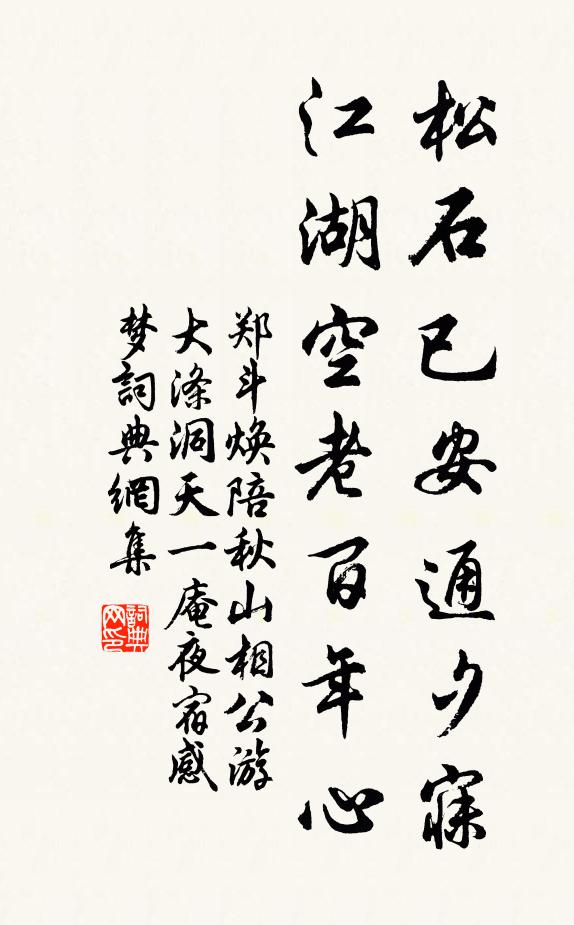 松石已安通夕寐
江湖空老百年心
郑斗焕陪秋山相公游
大涤洞天一庵夜宿感
梦詞典網集
詞典
网印